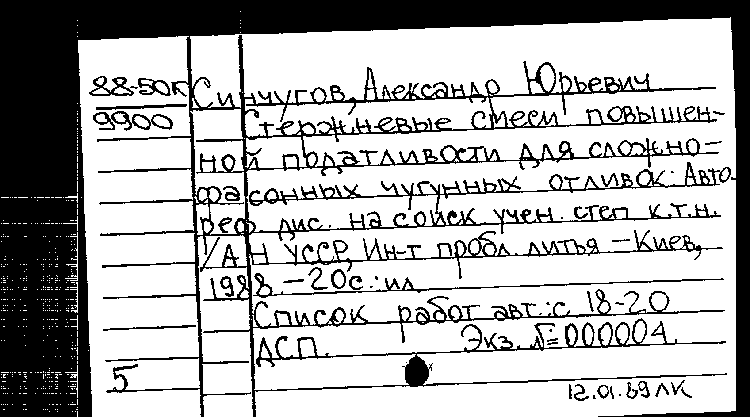 88-50К Синчугов, Александр Юрьевич
9900 Стержневые смеси повышен-
ной податливости для сложно=
фасонных чугунных отливок: Авто-
реф. дис. на соиск учен. степ к.т.н.
/АН УССР, Ин-т пробл. литья – Киев,
1988. – 20с.: ил
Список работ авт.: с 18-20
ДСП. Экз. № 000004.
5
12.01.89 ЛК